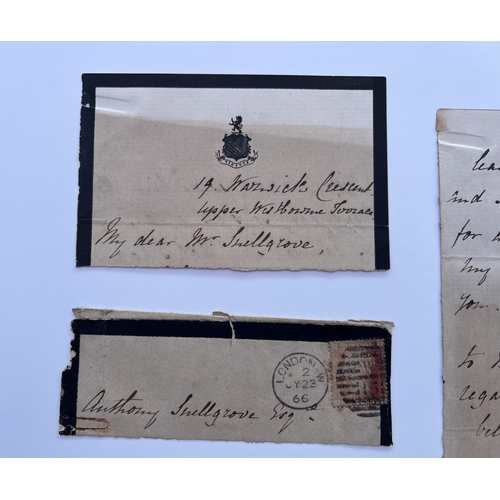 19. Warwick Crescent
Upper Westbourne Terrace
My dear Mr. Snellgrove,
LONDON-W
2
JY 23
66
Anthony Snellgrove Esqre.
and
for
my
you.
to
rega
bel